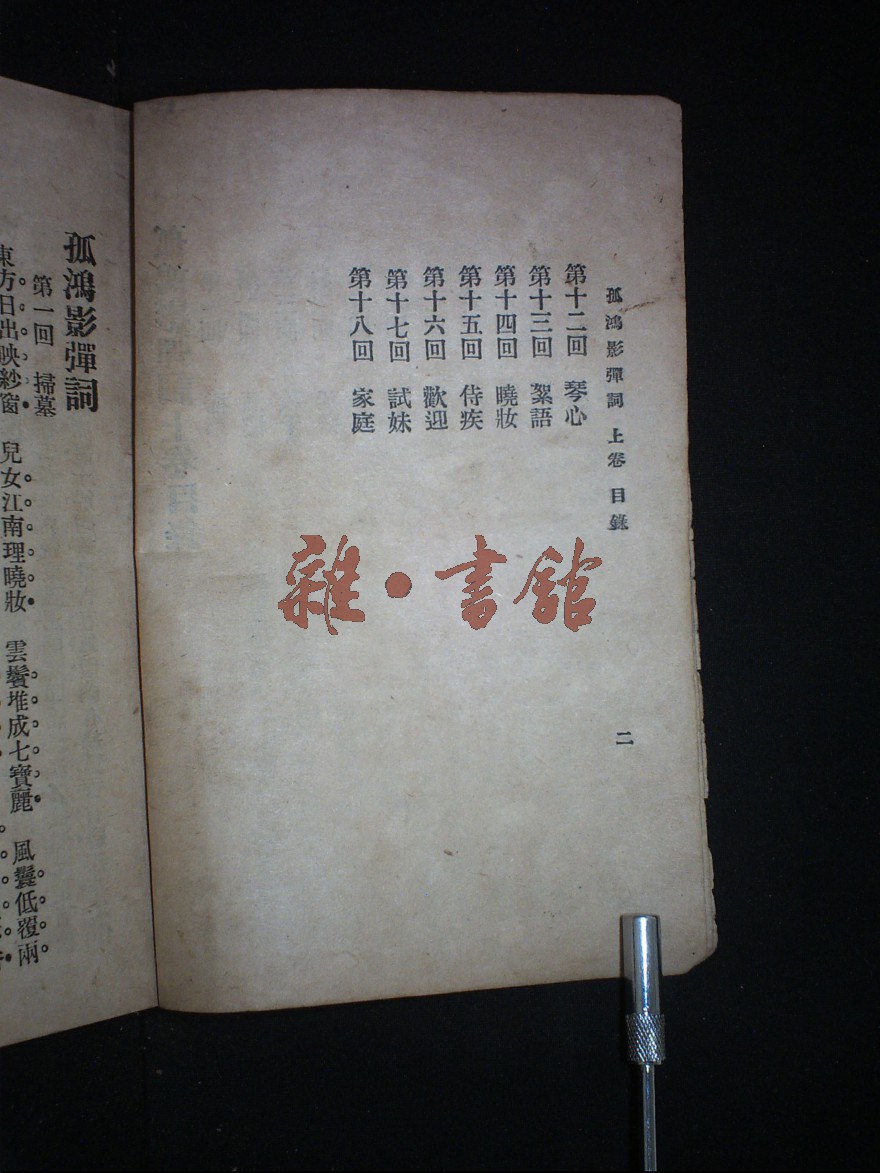 孤鴻影彈詞 上卷 目錄
二
第十二回 琴心
第十三回 絮語
第十四回 曉妝
第十五回 侍疾
第十六回 歡迎
第十七回 試妹
第十八回 家庭
雜·書館
孤鴻影彈詞
第一回 掃墓
東方日出映紗窗 兒女江南理曉妝 雲鬢堆成七寶麗 風鬟低覆兩